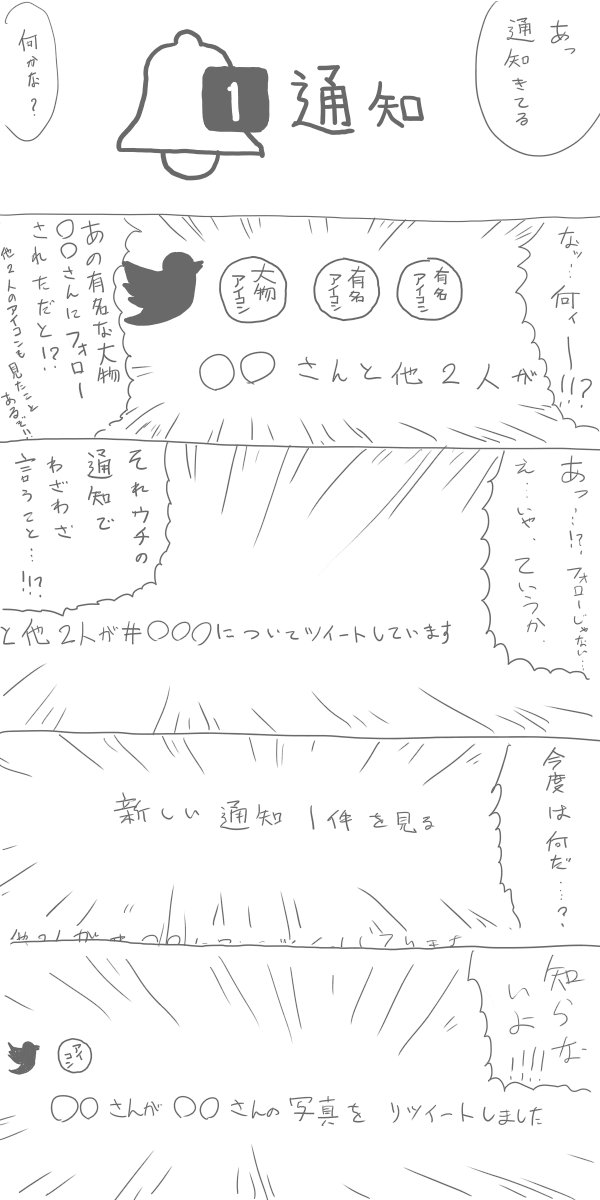 あっ
通知きてる
1
通知
何かな?
なッ…何ィー!!?
大物
アイコン
有名
アイコン
有名
アイコン
〇〇さんと他2人が
あの有名な大物
〇〇さんにフォロー
されただと!?
他2人のアイコンも見たこと
あるぞ!!
あっ…!?フォローじゃない…
え…いや、ていうか、
と他2人が#〇〇〇についてツイートしています
それウチの
通知で
わざわざ
言うこと…!!?
今度は何だ……?
新しい通知1件を見る
知らな
いよ!!!!
アイ
コン
〇〇さんが〇〇さんの写真をリツイートしました